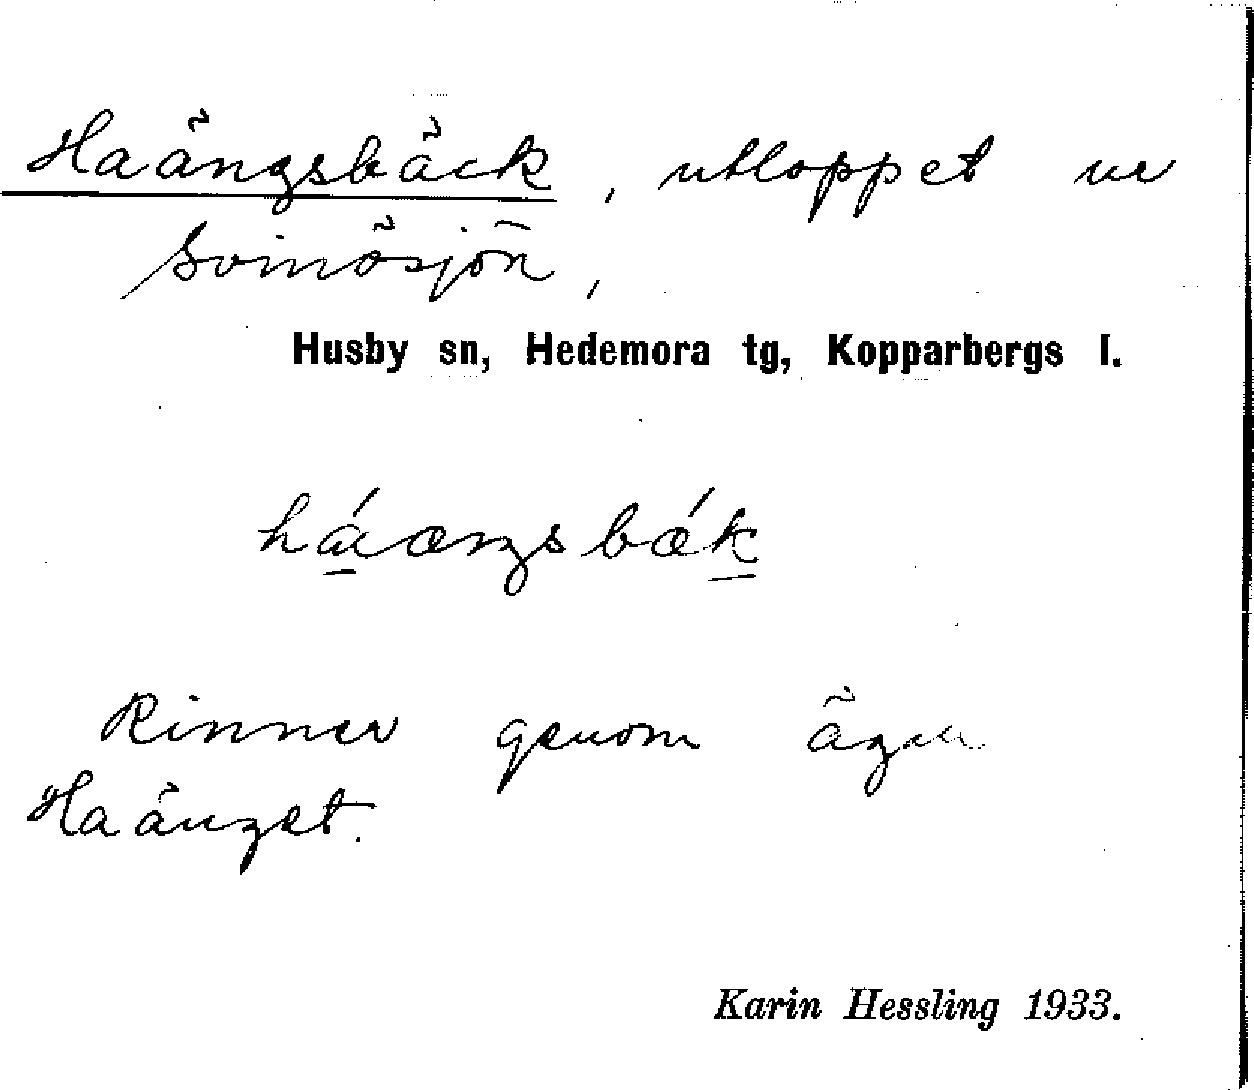 Haängsbäck, utloppet ur
Svinösjön,
Husby sn, Hedemora tg, Kopparbergs l.
háængsbǽk
Rinner genom ägan
Haänget.
Karin Hessling 1933.